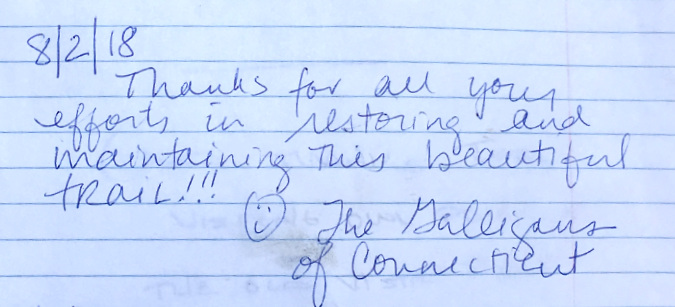 8/2/18
Thanks for all your
efforts in restoring and
maintaining this beautiful
trail!!!
The Galligans
of Connecticut